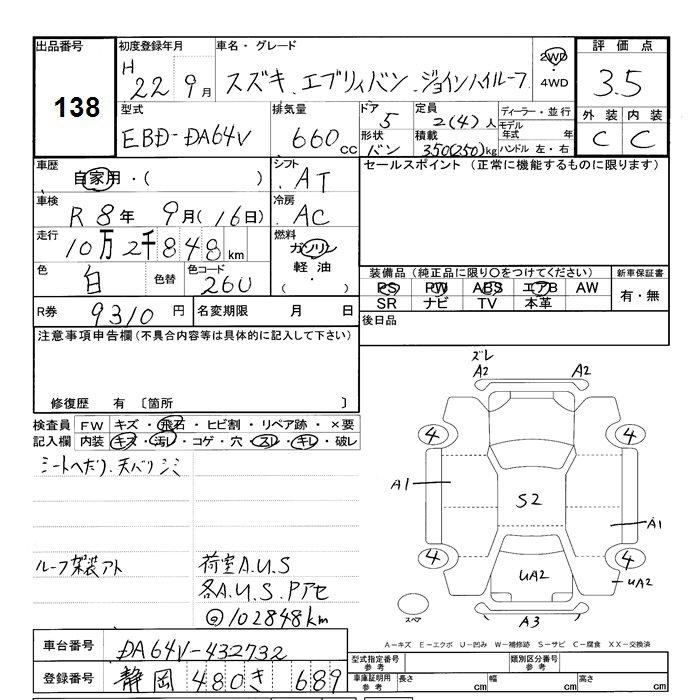 出品番号
138
初度登録年月
H 22年 9月
車名・グレード
スズキ エブリィバン ジョインハイルーフ
2WD
・
4WD
評価点
3.5
外装 内装
C C
型式
EBD-DA64V
排気量
660 cc
ドア
5
形状
バン
定員
2(4)人
積載
350(250)kg
ディーラー・並行
モデル年式 年
ハンドル 左・右
車歴
自家用・( )
シフト
AT
車検
R 8年 9月(16日)
冷房
AC
走行
10万2千848km
燃料
ガソリン
・
軽油
・
( )
色
白
色替
色コード
26U
R券 9310円
名変期限 月 日
セールスポイント(正常に機能するものに限ります)
装備品(純正品に限り○をつけてください)
PS PW ABS エアB AW
SR ナビ TV 本革
新車保証書
有・無
後日品
注意事項申告欄(不具合内容等は具体的に記入して下さい)
修復歴 有 〔箇所 〕
検査員記入欄
FW キズ・飛石・ヒビ割・リペア跡・×要
内装 キズ・汚レ・コゲ・穴・スレ・キレ・破レ
シートヘタリ.天バリシミ
ルーフ架装アト
荷室A.U.S
各A.U.S.Pアセ
◎102848km
ズレ
A2 A2
4 4
A1
S2
A1
4 4
UA2
UA2
スペア
A3
A-キズ E-エクボ U-凹み W-補修跡 S-サビ C-腐食 XX-交換済
車台番号 DA64V-432732
登録番号 静岡 480 き 689
型式指定番号 参考
類別区分番号 参考
車庫証明用 参考 長さ cm 幅 cm 高さ cm